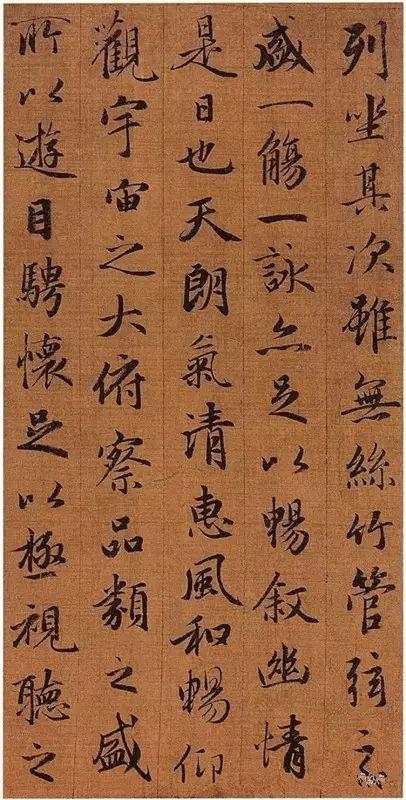 列坐其次雖無絲竹管弦之
盛一觴一詠亦足以暢敘幽情
是日也天朗氣清惠風和暢仰
觀宇宙之大俯察品類之盛
所以遊目騁懷足以極視聽之